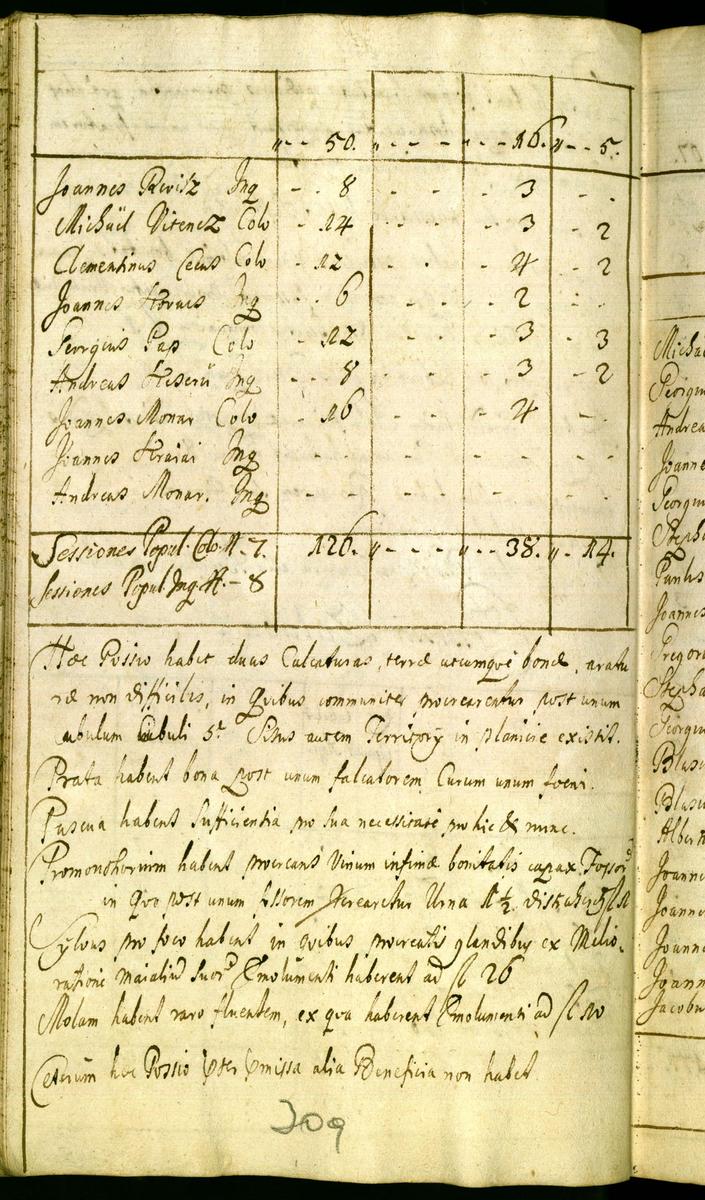 „ - - 50. „ - - - - - - 16. „ - - 5.
Joannes Revisz Inq - - 8 - - - - 3 - .
Michäel Vitencz Colo - 14 - - - - 3 - 2
Clementinus Colo - 12 - - - 4 - 2
Joannes Horvas Inq - - 6 - - - - 2 - .
Pap Colo - 12 - - - - 3 - 3
Andreas Inq - - 8 - - - - 3 - 2
Joannes Monar Colo - 16 - - - - 4 - .
Joannes Inq - - - - - - - -
Andreas Monar. Inq - - - - - - - -
Sessiones Popul. Colo. N. - 7. 126. „ - - - - „ - - 38. „ - 14.
Sessiones Popul. Inq. N. - 8
Hæc Possio habet duas Calcaturas, terræ utcumque bonæ, aratu
ræ non difficilis, in quibus communiter procrearentur post unum
cubulum Cubuli 5. Situs autem Territory in planicie existit.
Prata habent bona post unum falcatorem Currum unum foeni.
Pascua habent Sufficientia pro sua necessitate pro hic & nunc.
Promonthorium habent procreans Vinum infimæ bonitatis capax Fossor
in quo post unum fossorem Urna 1½
Sylvas pro foco habent in quibus procreatis glandibus ex Melio-
ratione maialium Emolumenti haberent ad fl 26
Molam habent raro fluentem, ex qua haberent Emolumenti ad fl 10
Ceterum hæc Possio præter præmissa alia Beneficia non habet
209
Andrea
Joanne
Steph
Paulus
Joannes
Gregori
Stepha
Georgiu
Blasi
Blasiu
Albert
Joanne
Joanne
Joanne
Joann
Jacobu